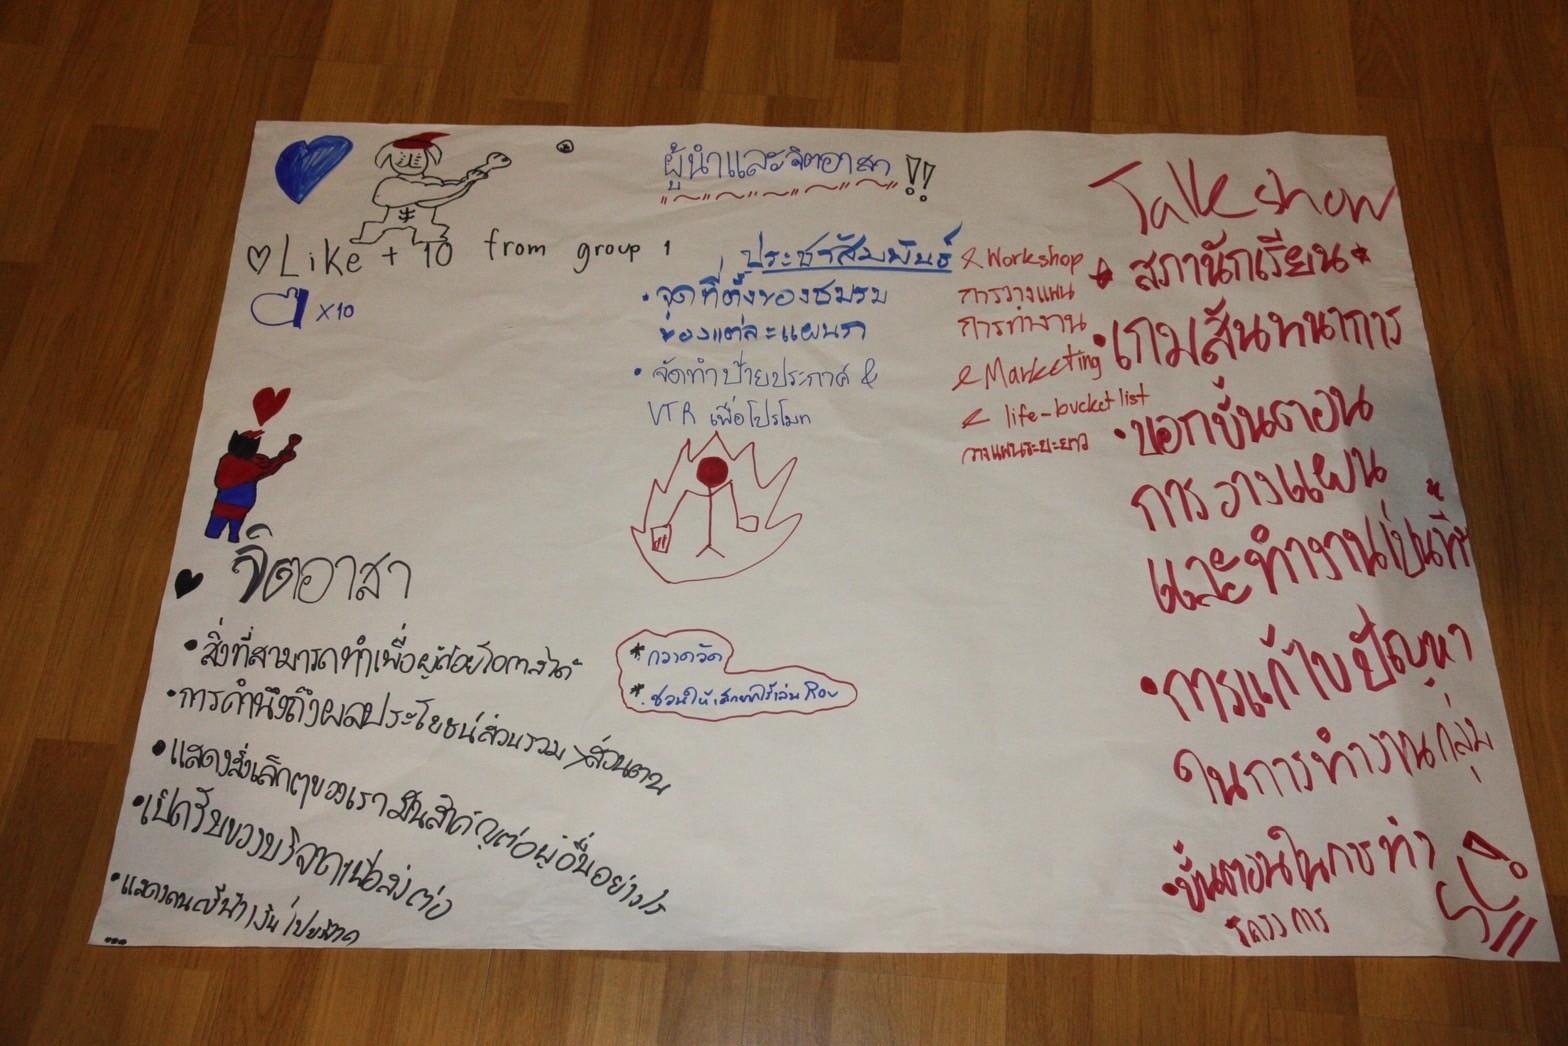 ผู้นำและจิตอาสา !!
♡ Like + 10 from group 1
x10
ประชาสัมพันธ์
• จุดที่ตั้งของชมรม
ของแต่ละแผนก
• จัดทำป้ายประกาศ &
VTR เพื่อโปรโมท
Workshop
การวางแผน
การทำงาน
Marketing
life-bucket list
วางแผนระยะยาว
Talk show
สภานักเรียน
• เกมสันทนาการ
• บอกขั้นตอน
การวางแผน
และทำงานเป็นทีม
• การแก้ไขปัญหา
ในการทำงานกลุ่ม
• ขั้นตอนในการทำ
โครงการ
จิตอาสา
• สิ่งที่สามารถทำเพื่อผู้ด้อยโอกาสได้
• การคำนึงถึงผลประโยชน์ส่วนรวม > ส่วนตน
• แสดงสิ่งเล็กๆของเรามันสำคัญต่อผู้อื่นอย่างไร
• เปิดรับของบริจาคเพื่อส่งต่อ
...
* กวาดวัด
* ชวนให้เล่น Rov